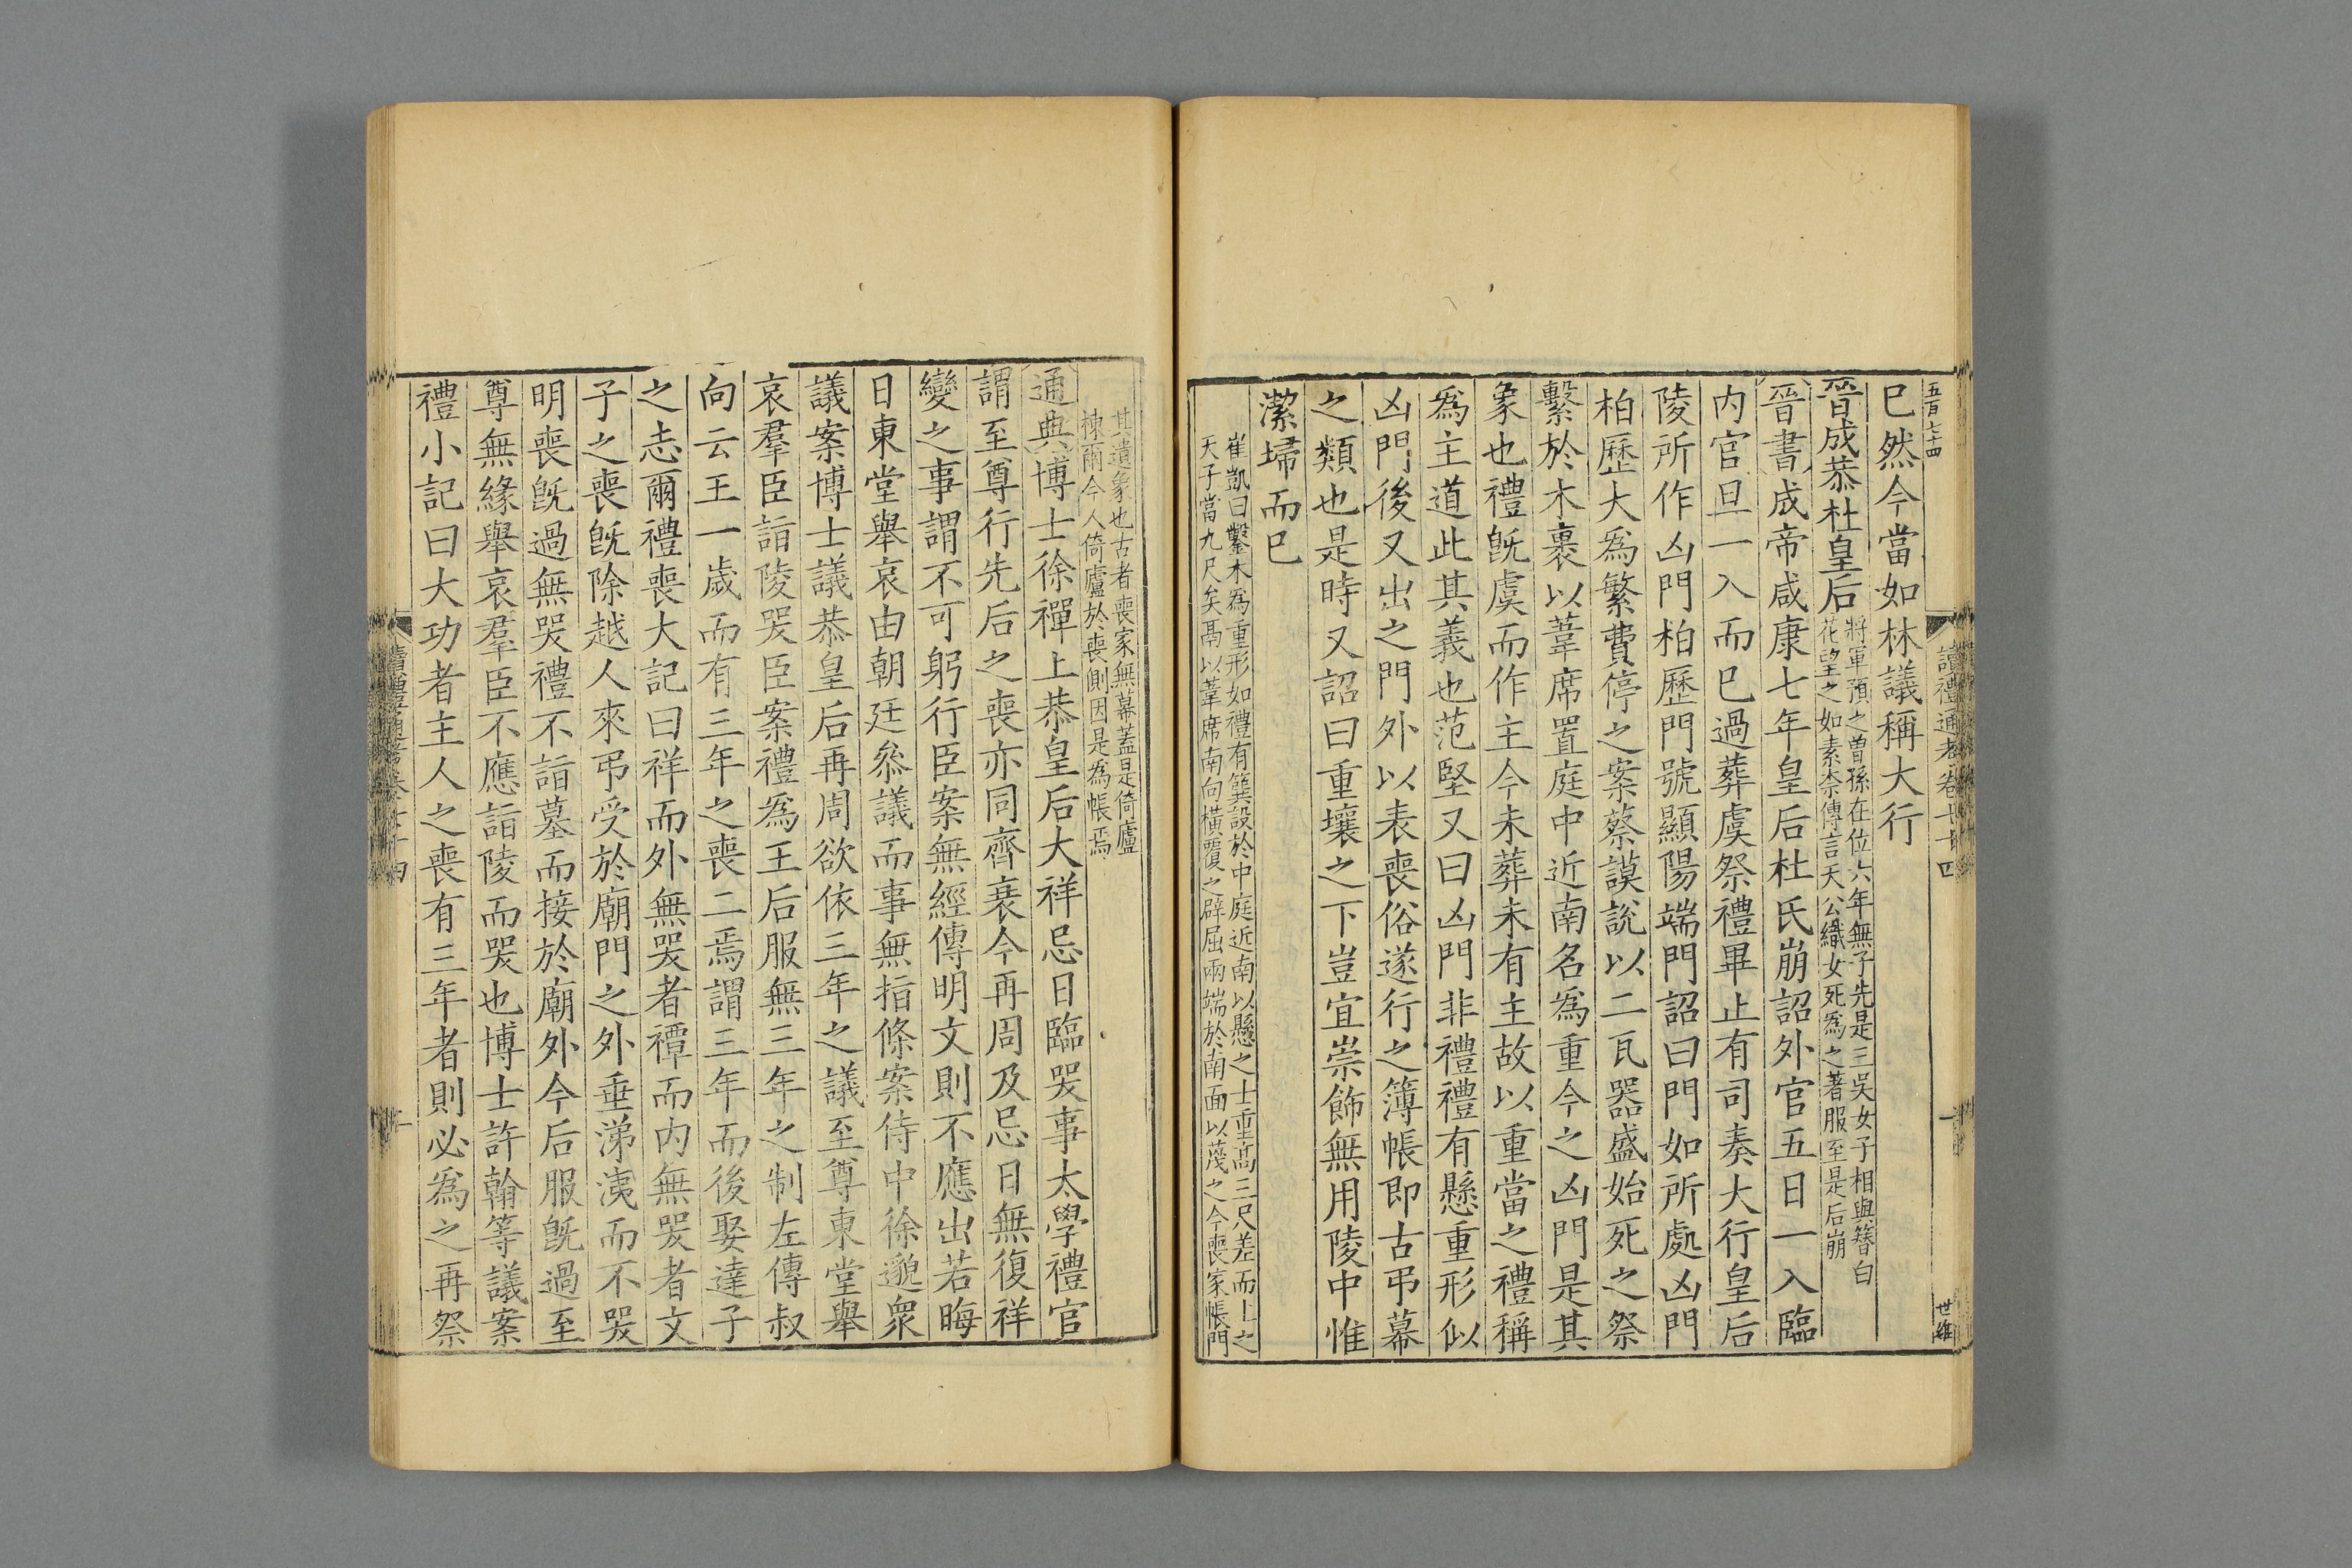 五百七十四
讀禮通考卷七十四
一
世維
已然今當如林議稱大行
晉成恭杜皇后
將軍預之曾孫在位六年無子先是三吳女子相與簪白
花望之如素柰傳言天公織女死爲之著服至是后崩
晉書成帝咸康七年皇后杜氏崩詔外官五日一入臨
内官旦一入而已過葬虞祭禮畢止有司奏大行皇后
陵所作凶門柏歷門號顯陽端門詔曰門如所處凶門
柏歷大爲繁費停之案蔡謨說以二瓦器盛始死之祭
繫於木裹以葦席置庭中近南名爲重今之凶門是其
象也禮旣虞而作主今未葬未有主故以重當之禮稱
爲主道此其義也范堅又曰凶門非禮禮有懸重形似
凶門後又出之門外以表喪俗遂行之簿帳即古弔幕
之類也是時又詔曰重壤之下豈宜崇飾無用陵中惟
潔埽而已
崔凱曰鑿木爲重形如禮有簨設於中庭近南以懸之士重高三尺差而上之
天子當九尺矣鬲以葦席南向橫覆之辟屈兩端於南面以茂之今喪家帳門
其遺象也古者喪家無幕蓋是倚廬
梀爾今人倚廬於喪側因是爲帳焉
通典博士徐禪上恭皇后大祥忌日臨哭事太學禮官
謂至尊行先后之喪亦同齊衰今再周及忌日無復祥
變之事謂不可躬行臣案無經傳明文則不應出若晦
日東堂舉哀由朝廷叅議而事無指條案侍中徐邈衆
議案博士議恭皇后再周欲依三年之議至尊東堂舉
哀羣臣詣陵哭臣案禮爲王后服無三年之制左傳叔
向云王一歲而有三年之喪二焉謂三年而後娶達子
之志爾禮喪大記曰祥而外無哭者禫而内無哭者文
子之喪旣除越人來弔受於廟門之外垂涕洟而不哭
明喪旣過無哭禮不詣墓而接於廟外今后服旣過至
尊無緣舉哀羣臣不應詣陵而哭也博士許翰等議案
禮小記曰大功者主人之喪有三年者則必爲之再祭
讀禮通考卷七十四